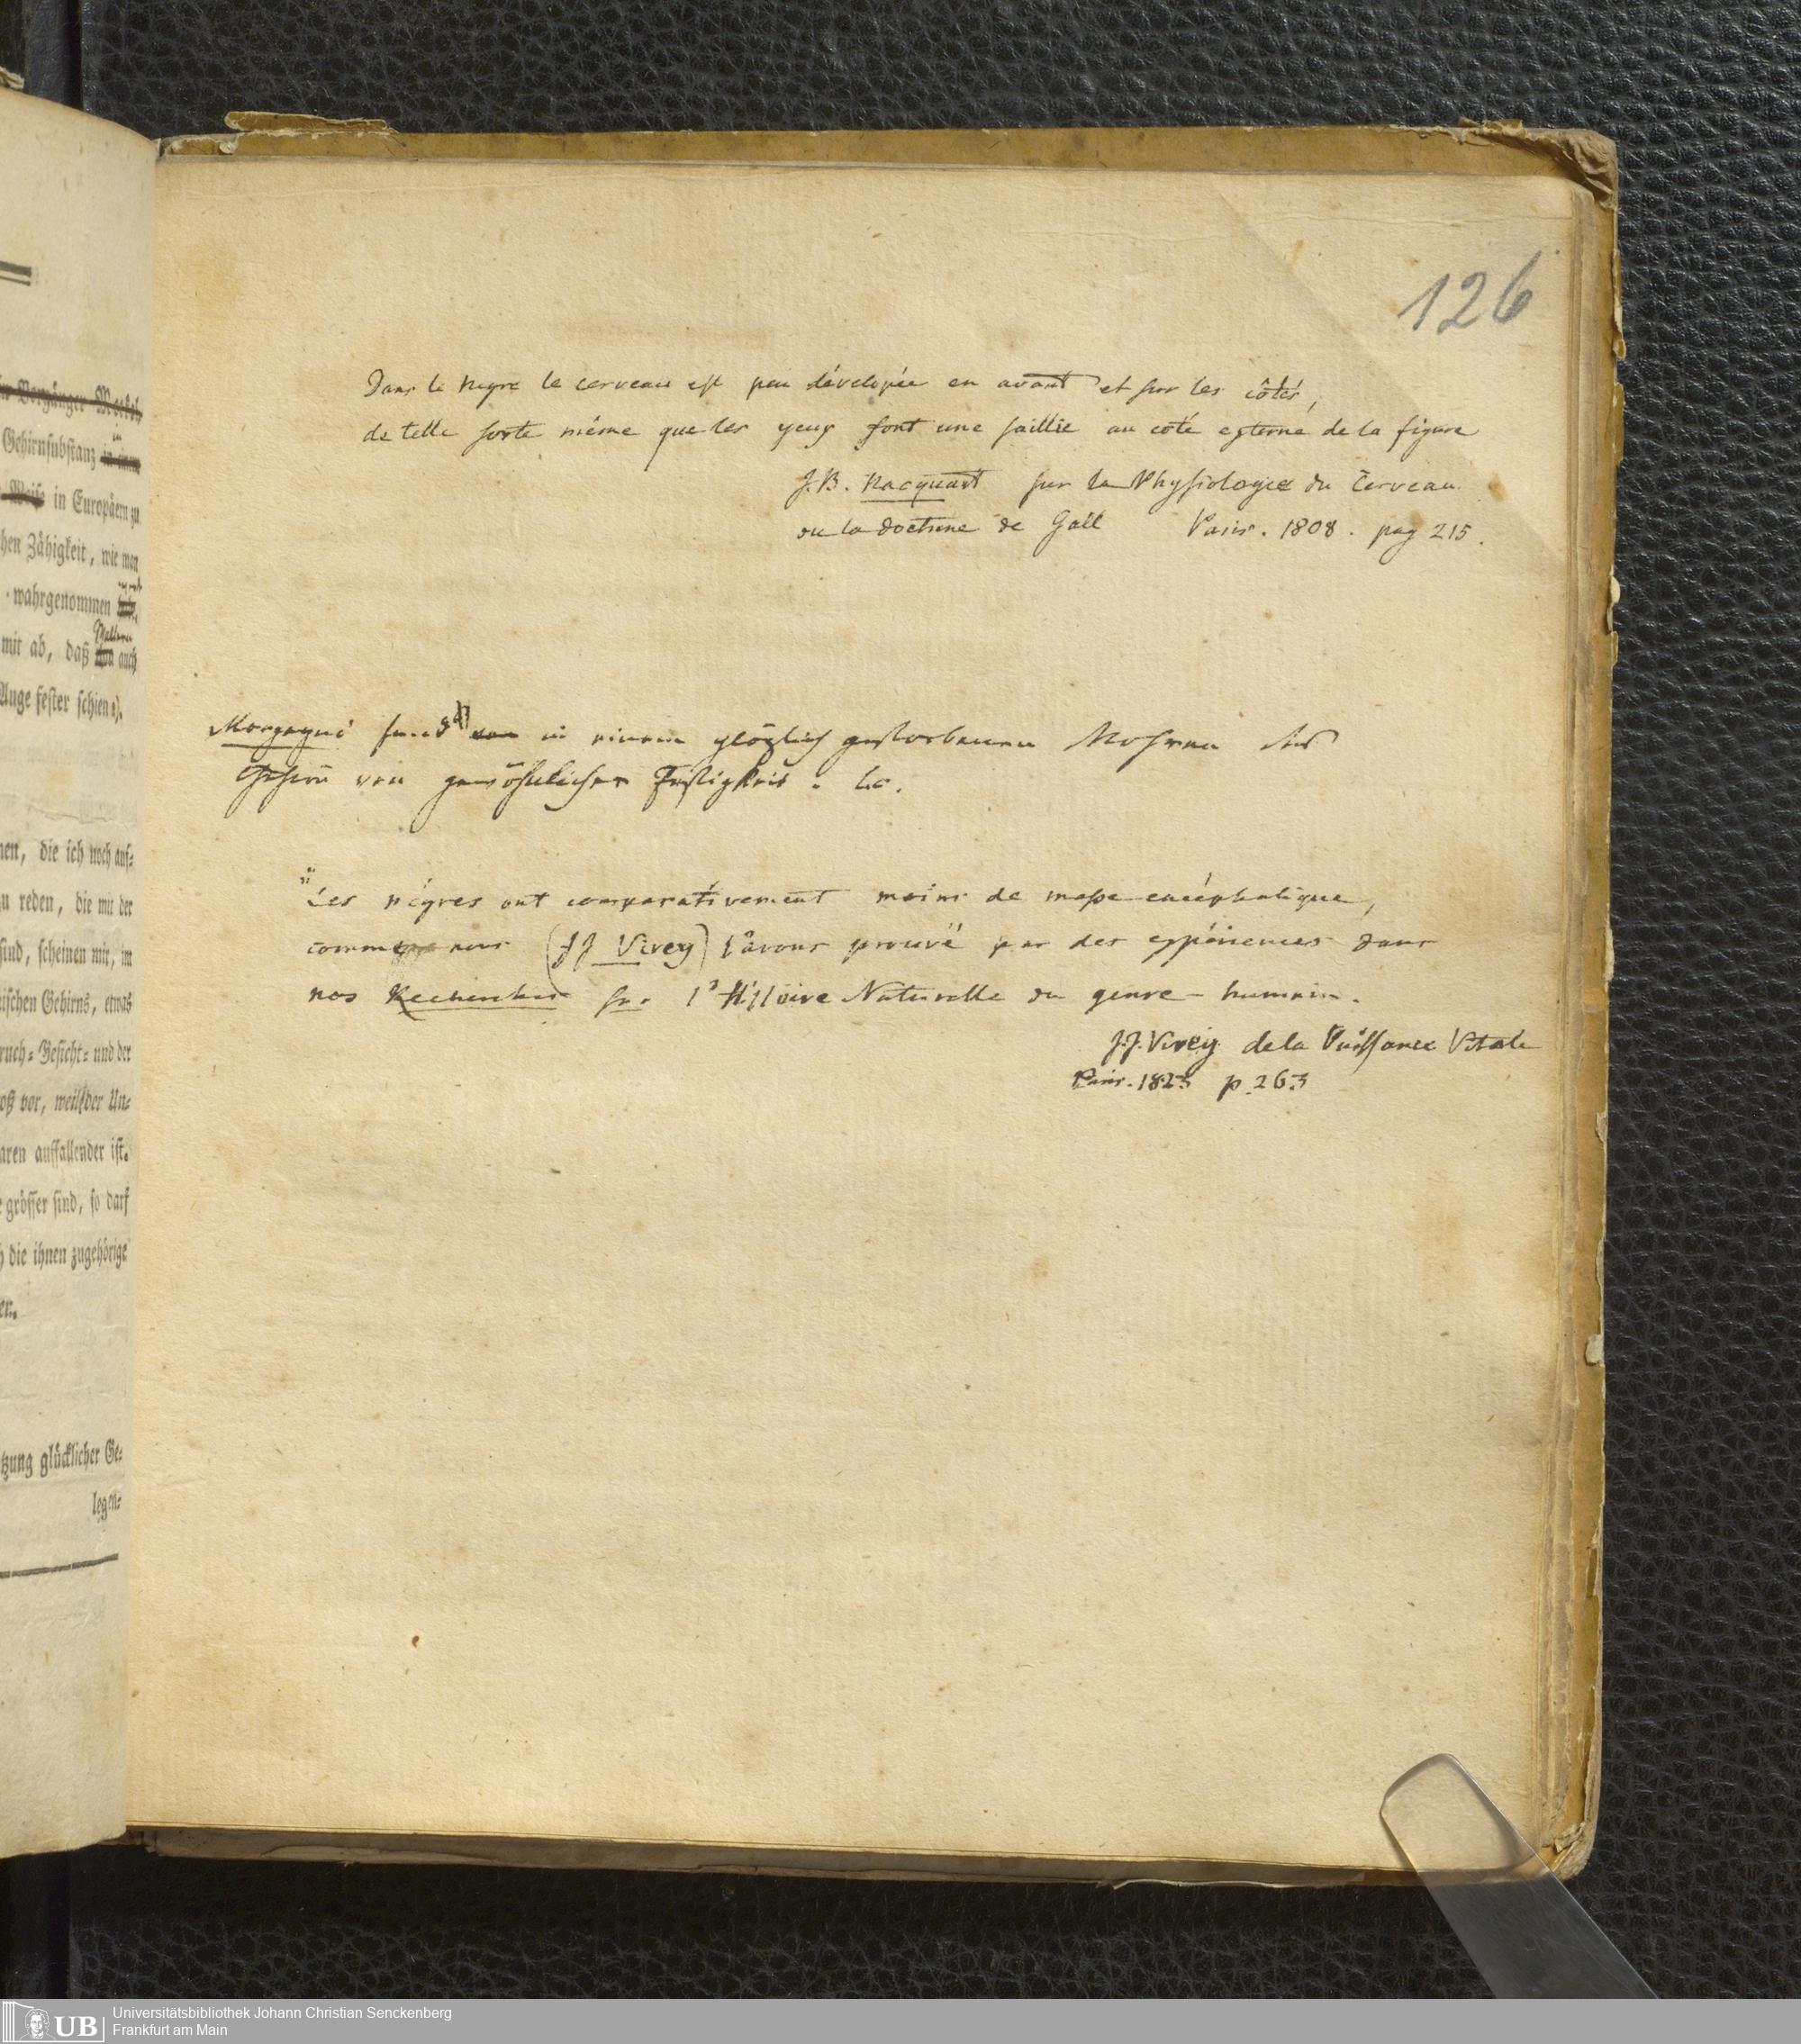 Vorgänger Meckel
Gehirnsubstanz
Weise in Europäern zu
hen Zähigkeit, wie man
wahrgenommen
mit ab, daß auch
Auge fester schien
nen, die ich noch auf-
zu reden, die mit der
sind, scheinen mir, im
ischen Gehirns, etwas
ruch- Gesicht- und der
oß vor, weil der Un-
aren auffallender ist.
grösser sind, so darf
h die ihnen zugehörige
er.
tzung glücklicher Ge-
legen-
126
Dans le Negre le cerveau est peu dévelopée en avant et sur les côtés,
de telle sorte même que les yeux font une saillie au coté externe de la figure
J.B. Nacquart sur la Physiologie du Cerveau
ou la doctrine de Gall Paris. 1808. pag 215.
Morgagni fand in einem plözlich gestorbenen Mohren das
Gehirn von gewöhnlicher Festigkeit. l.c.
"Les négres ont comparativement moins de masse encéphalique,
comme nous (JJ Virey) l'avons prouvé par des expériences dans
nos Recherches sur l'Histoire Naturelle du genre humain.
J.J. Virey de la Puissance Vitale
Paris. 1823 p. 263
UB
Universitätsbibliothek Johann Christian Senckenberg
Frankfurt am Main